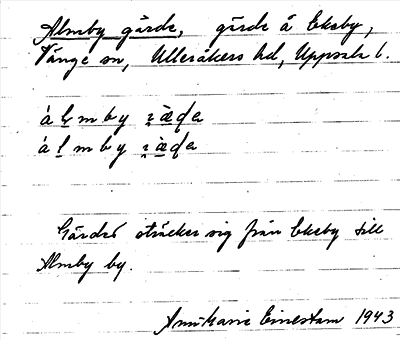 Almby gärde, gärde å Ekeby,
Vänge sn, Ulleråkers hd, Uppsala l.
Gärdet sträcker sig från Ekeby till
Almby by.
Ann-Marie Einestam 1943